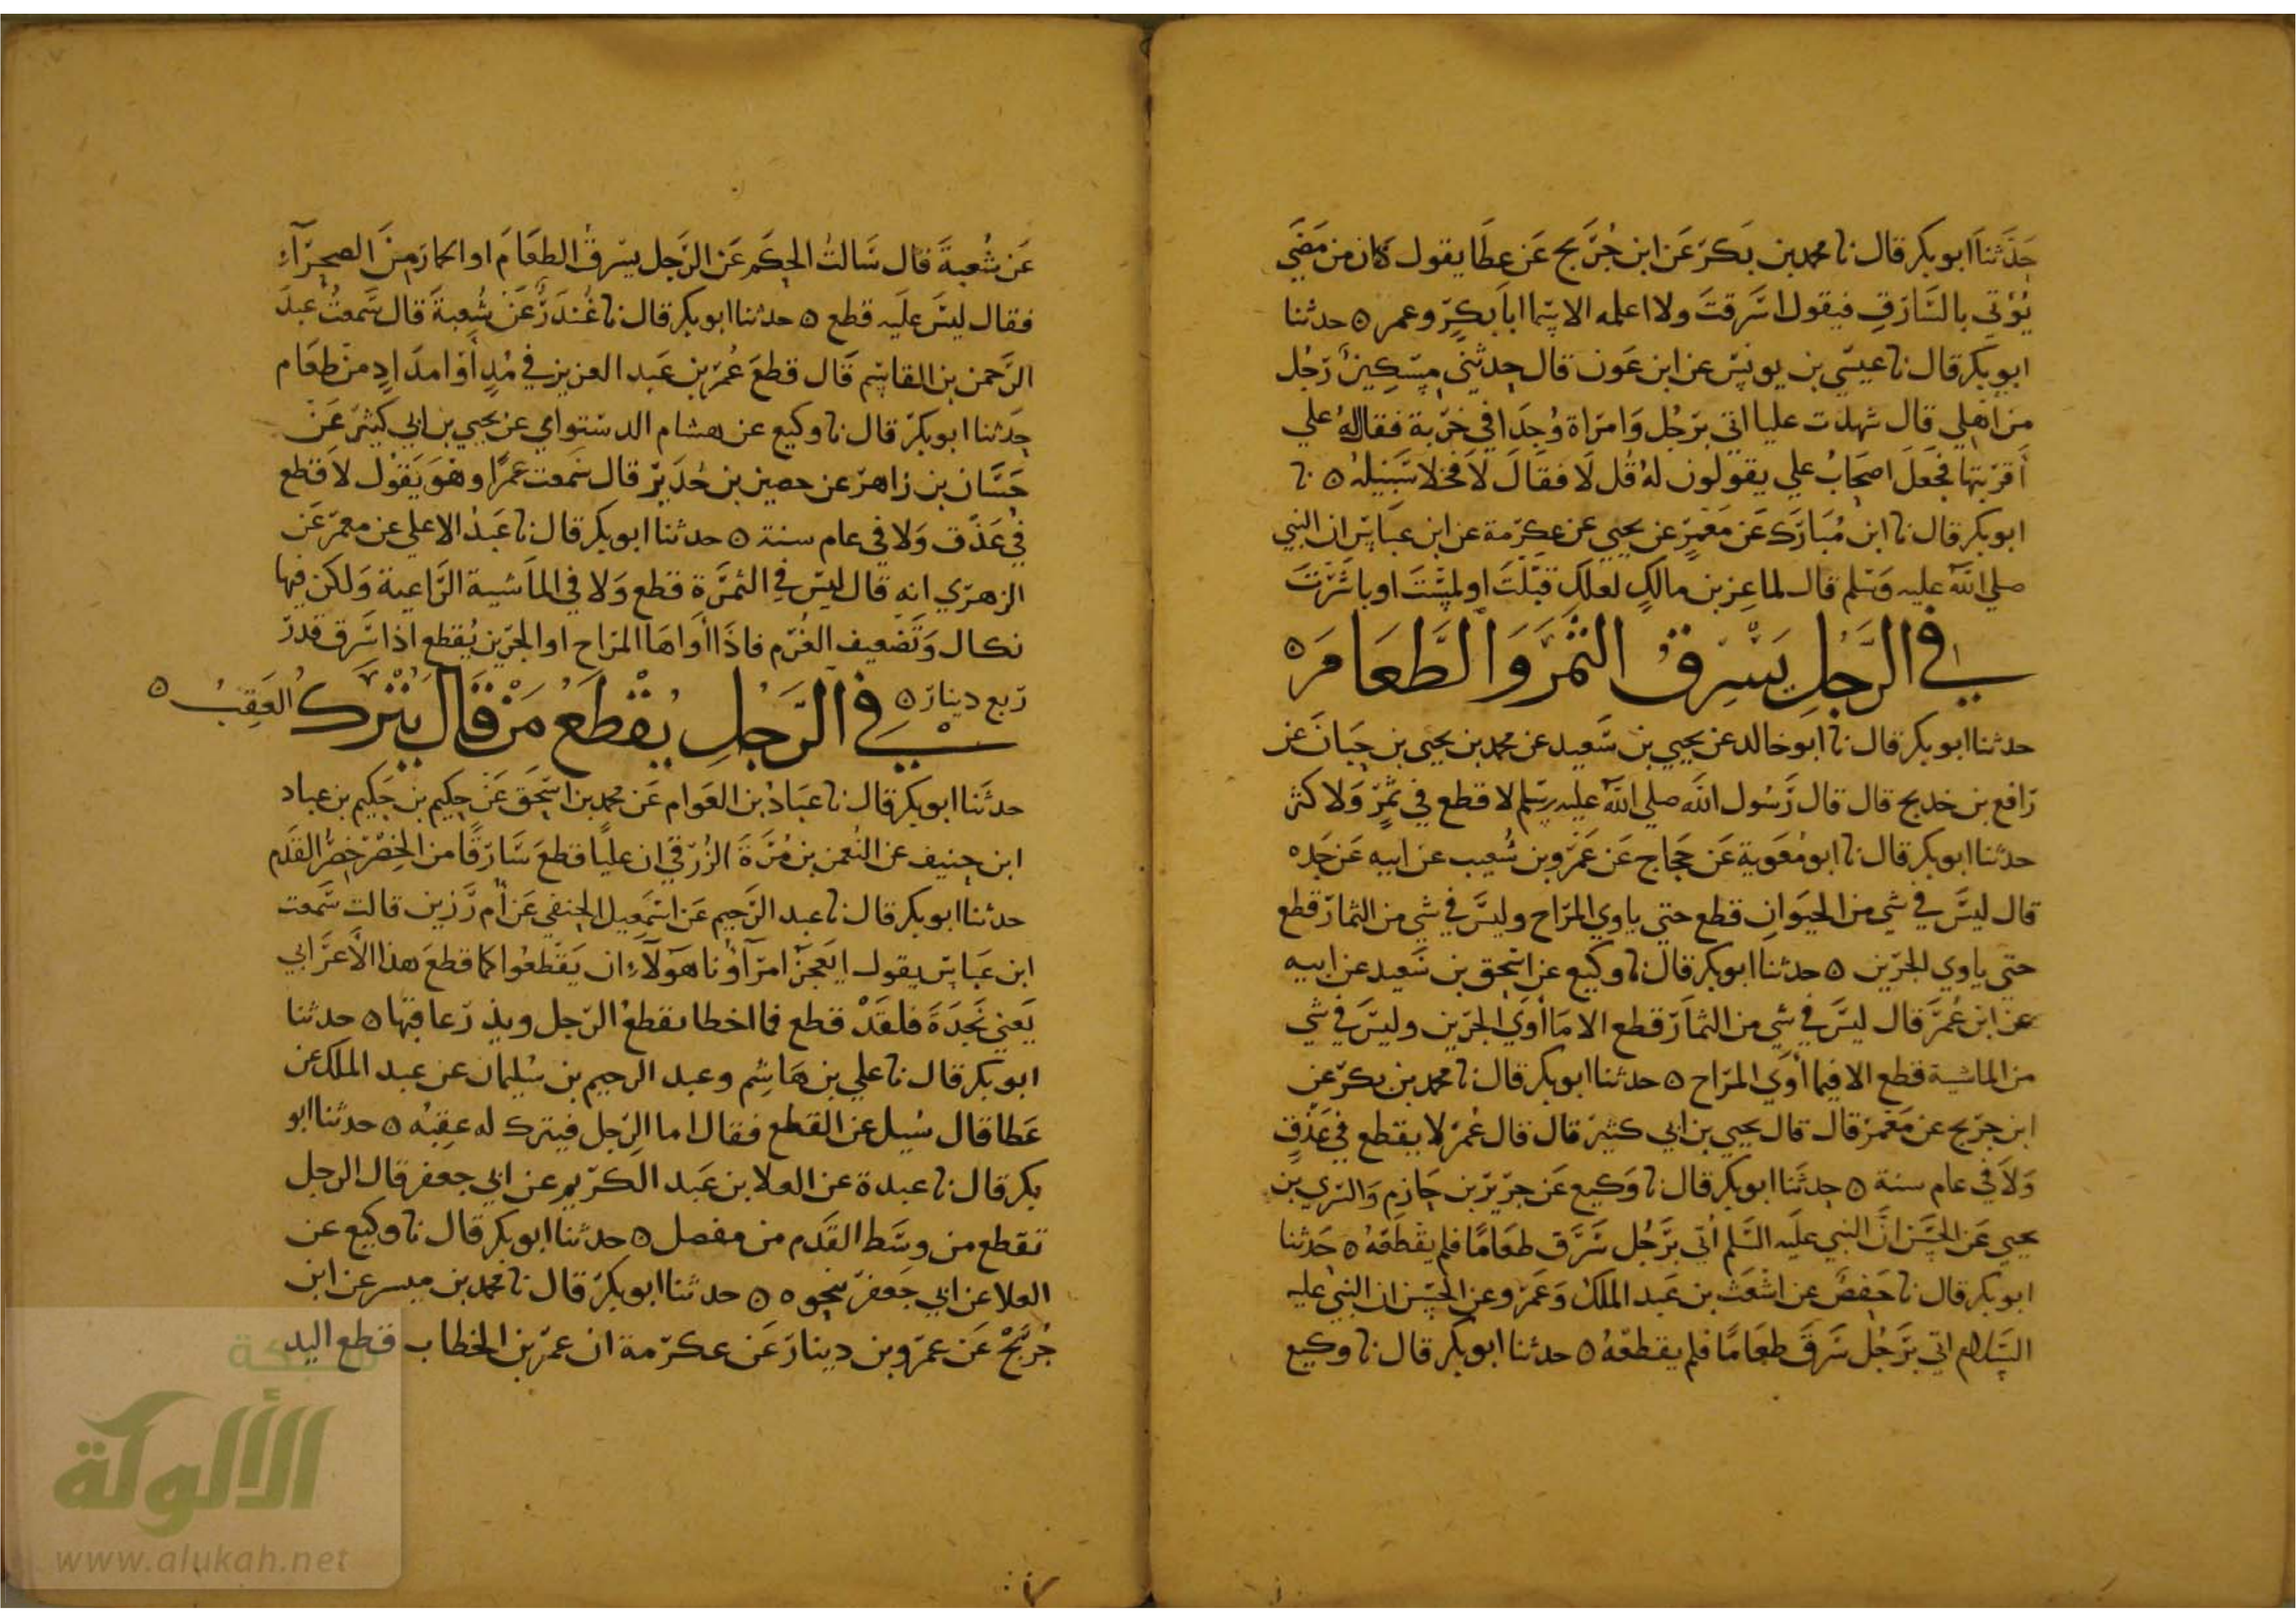 حَدَّثنا ابو بكر قال نا محمد بن بَكر عَن ابن جُرَيج عَن عطَا يقول كان من مَضَى
يُؤتي بالسَّارق فيقول اسَرقتَ ولا اعلمه الا سمّا ابا بكرٍ وعمر ه حدثنا
ابو بكر قال نا عيسي بن يونس عن ابن عَون قال حدثني مِسْكِينٌ رَجُل
من اهلي قال شهدت عليا اتي برَجُل وَامرَاة وُجدَا في خَربة فقال لهُ علي
أقربتها فجَعَلَ اصحَابُ علي يقولون لهُ قُل لَا فقَالَ لَا فخلا سَبيلهُ ه نا
ابو بكر قال نا ابن مُبَارَك عَن مَعْمَرٍ عَن يحيي عن عِكرمة عن ابن عبَاس ان النبي
صلي اللّه عليه وَسَلم قال لماعِز بن مالكٍ لعلكِ قبَّلتَ او لمسْتَ او باشَرْتَ
في الرَّجُلِ يَسْرِقُ التَّمْرَ وَالطَّعَامَ ه
حدثنا ابو بكر قال نا ابَو خالد عن يحيي بن سَعيد عن محمد بن يحيي بن حَبانَ عن
رَافع بن خديج قال قال رَسُول اللّه صلي اللّه عليه وسلم لا قطع في ثَمَرٍ وَلا كثر
حدثنا ابو بكر قال نا ابو مُعَوية عَن حَجاج عَن عَمْرو بن شُعيب عن ابيه عَن جَده
قال ليسَ في شي من الحيَوانِ قطع حتي ياوي المرَاح وليسَ في شي من الثمار قطع
حتي ياوي الجرين ه حدثنا ابو بكر قال نا وكيع عن اسحق بن سَعيد عن ابيه
عن ابن عُمَر قال ليسَ في شي من الثمار قطع الا مَا أوَي الجرين وليسَ في شي
من الماشية قطع الا فيما أوَي المرَاح ه حدثنا ابو بكر قال نا محمد بن بكر عن
ابن جُرَيج عن مَعْمَر قال قال يحيي بن ابي كثير قال قال عُمَر لا يقطع في عَذْقٍ
وَلَا في عام سنة ه حدثَنا ابو بكر قال نا وَكيع عَن جرير بن حَازِم وَالسَري بن
يحيي عَن الحَسَن انَّ النبي عليَه السَّلم أُتي برَجُل سَرَق طعَامًا فلم يقْطَعهُ ه حَدثنا
ابو بكر قال نا حَفصٌ عن اشعَث بن عَبد الملك وَعَمْرو عن الحَسَن ان النبي عليه
السَّلام اتي برَجُل سَرَقَ طعَامًا فلم يقطعهُ ه حدثنا ابو بكر قال نا وكيع
عَن شُعبةَ قال سَالتُ الحكَم عَن الرَجل يسرقُ الطعَامَ او الحمار من الصحرآءِ
فقال ليسَ علَيه قطع ه حدثنا ابو بكر قال نا غُندَر عَن شُعبةَ قال سَمعتُ عبدَ
الرَّحمن بن القاسِم قَال قطعَ عُمَر بن عَبد العزيز في مُدٍ أوَ امدَادٍ من طعَام
حدَثنا ابو بكر قال نا وكيع عن هشام الدستواي عن يحيي بن ابي كثير عَنْ
حَسَّان بن زاهر عن حصين بن حُدَير قال سَمعت عمرًا وهوَ يَقول لا قطع
في عَذق وَلا في عام سنة ه حدثنا ابو بكر قال نا عَبدُ الاعلي عن معمر عَن
الزهري انه قال ليسَ في الثمَرَة قطع وَلا في الماَشية الرَّاعية وَلكن فيها
نكال وَتَضعيف الغُرم فاذَا أواهَا المرَاح او الجرين يُقطع اذا سَرق قدر
رَبع دينار ه في الرَّجُلِ يُقْطَعُ مَنْ قَالَ يُتْرَكُ العَقِبُ ه
حدثَنا ابو بكر قال نا عبَادُ بن العَوام عَن محمد بن اسحَق عَن حكيم بن حَكيم بن عباد
ابن حنيف عن النُعمن بن مُرَّةَ الزُرَقي ان عليًا قطعَ سَارقًا من الخِصْر خِصْر القَدَم
حدثنا ابو بكر قال نا عبد الرَّحيم عَن اسمَعيل الحنفي عَن أم رَزين قالت سَمعت
ابن عَباس يقول ايَعجزُ امرآؤُنا هَوَلآءِ ان يَقْطعُوا كما قطعَ هذا الأعرَابي
يَعني نَجدَةَ فلقَدْ قطع فما اخطا يقطعُ الرَجل ويذر عاقبها ه حدثنا
ابو بكر قال نا علي بن هَاشِم وعبد الرحيم بن سُليمان عن عبد الملك عن
عَطا قال سُيل عن القطع فقال اما الرَجل فيترك له عقِبُه ه حدثنا ابو
بكر قال نا عبدة عن العلا بن عَبد الكَريم عن ابي جعفر قال الرجل
تقطع من وسَط القَدَم من مفصل ه حدثنا ابو بكر قال نا وكيع عن
العلا عن ابي جَعفر بنحوه ه حدثنا ابو بكر قال نا محمد بن ميسر عن ابن
جُرَيْجٍ عَن عَمْرو بن دينار عَن عكرمة ان عمر بن الخطاب قطع اليد
شبكة
الألوكة
www.alukah.net